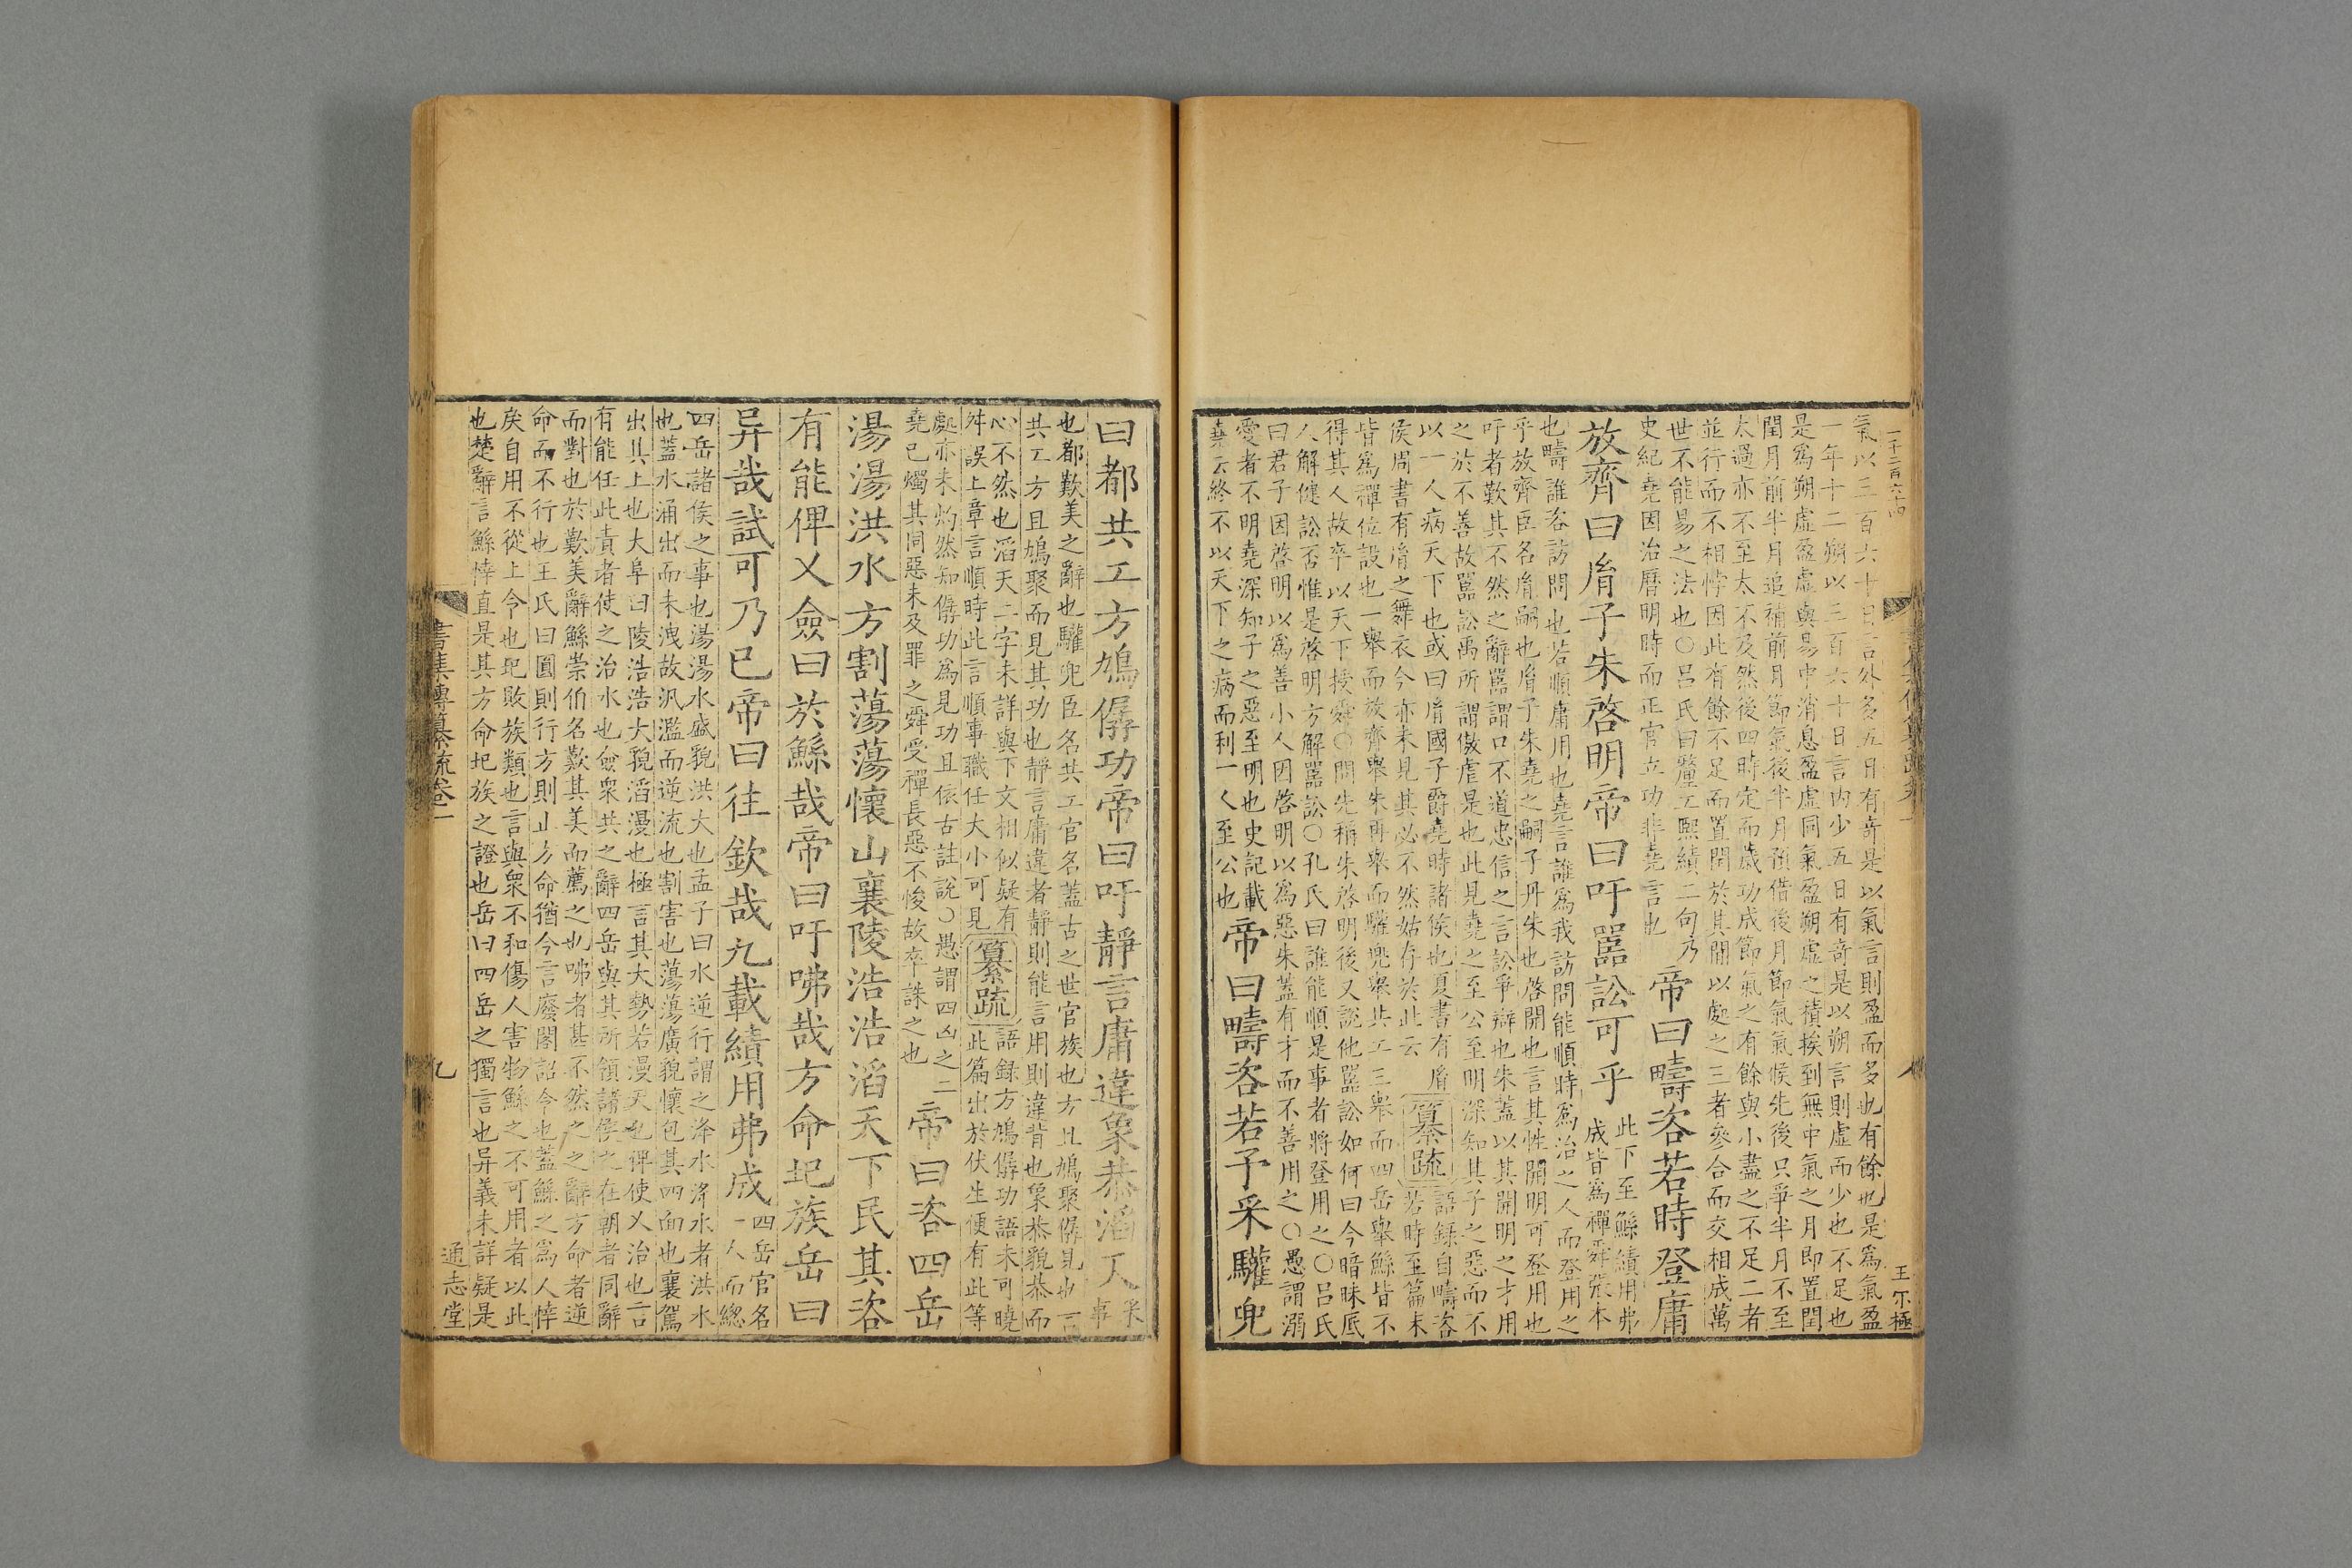 一千二百六十四
王尔極
氣以三百六十日言外多五日有奇是以氣言則盈而多也有餘也是爲氣盈
一年十二朔以三百六十日言内少五日有奇是以朔言則虚而少也不足也
是爲朔虚盈虚與易中消息盈虚同氣盈朔虚之積挨到無中氣之月即置閏
閏月前半月追補前月節氣後半月預借後月節氣氣候先後只爭半月不至
太過亦不至太不及然後四時定而歲功成節氣之有餘與小盡之不足二者
並行而不相悖因此有餘不足而置閏於其間以處之三者參合而交相成萬
世不能易之法也○吕氏曰釐工熙績二句乃
史紀堯因治曆明時而正官立功非堯言也
帝曰疇咨若時登庸
放齊曰胤子朱啓明帝曰吁嚚訟可乎
此下至鯀績用弗
成皆爲禪舜張本
也疇誰咨訪問也若順庸用也堯言誰爲我訪問能順時爲治之人而登用之
乎放齊臣名胤嗣也胤子朱堯之嗣子丹朱也啓開也言其性開明可登用也
吁者歎其不然之辭嚚謂口不道忠信之言訟爭辯也朱蓋以其開明之才用
之於不善故嚚訟禹所謂傲虐是也此見堯之至公至明深知其子之惡而不
以一人病天下也或曰胤國子爵堯時諸侯也夏書有胤
侯周書有胤之舞衣今亦未見其必不然姑存於此云
纂疏
語録自疇咨
若時至篇末
皆爲禪位設也一舉而放齊舉朱再舉而驩兜舉共工三舉而四岳舉鯀皆不
得其人故卒以天下授舜○問先稱朱啓明後又説他嚚訟如何曰今暗昧底
人解健訟否惟是啓明方解嚚訟○孔氏曰誰能順是事者將登用之○吕氏
曰君子因啓明以爲善小人因啓明以爲惡朱蓋有才而不善用之○愚謂溺
愛者不明堯深知子之惡至明也史記載
堯云終不以天下之病而利一人至公也
帝曰疇咨若予采驩兜
曰都共工方鳩僝功帝曰吁靜言庸違象恭滔天
采
事
也都歎美之辭也驩兜臣名共工官名蓋古之世官族也方且鳩聚僝見也言
共工方且鳩聚而見其功也靜言庸違者靜則能言用則違背也象恭貌恭而
心不然也滔天二字未詳與下文相似疑有
舛誤上章言順時此言順事職任大小可見
纂疏
語録方鳩僝功語未可曉
此篇出於伏生便有此等
處亦未灼然知僝功爲見功且依古註説○愚謂四凶之二
堯已燭其同惡未及罪之舜受禪長惡不悛故卒誅之也
帝曰咨四岳
湯湯洪水方割蕩蕩懷山襄陵浩浩滔天下民其咨
有能俾乂僉曰於鯀哉帝曰吁咈哉方命圮族岳曰
异哉試可乃已帝曰往欽哉九載績用弗成
四岳官名
一人而總
四岳諸侯之事也湯湯水盛貌洪大也孟子曰水逆行謂之洚水洚水者洪水
也蓋水涌出而未洩故汎濫而逆流也割害也蕩蕩廣貌懷包其四面也襄駕
出其上也大阜曰陵浩浩大貌滔漫也極言其大勢若漫天也俾使乂治也言
有能任此責者使之治水也僉衆共之辭四岳與其所領諸侯之在朝者同辭
而對也於歎美辭鯀崇伯名歎其美而薦之也咈者甚不然之之辭方命者逆
命而不行也王氏曰圓則行方則止方命猶今言廢閣詔令也蓋鯀之爲人悻
戾自用不從上令也圮敗族類也言與衆不和傷人害物鯀之不可用者以此
也楚辭言鯀悻直是其方命圮族之證也岳曰四岳之獨言也异義未詳疑是
書集傳纂疏卷一
九
通志堂